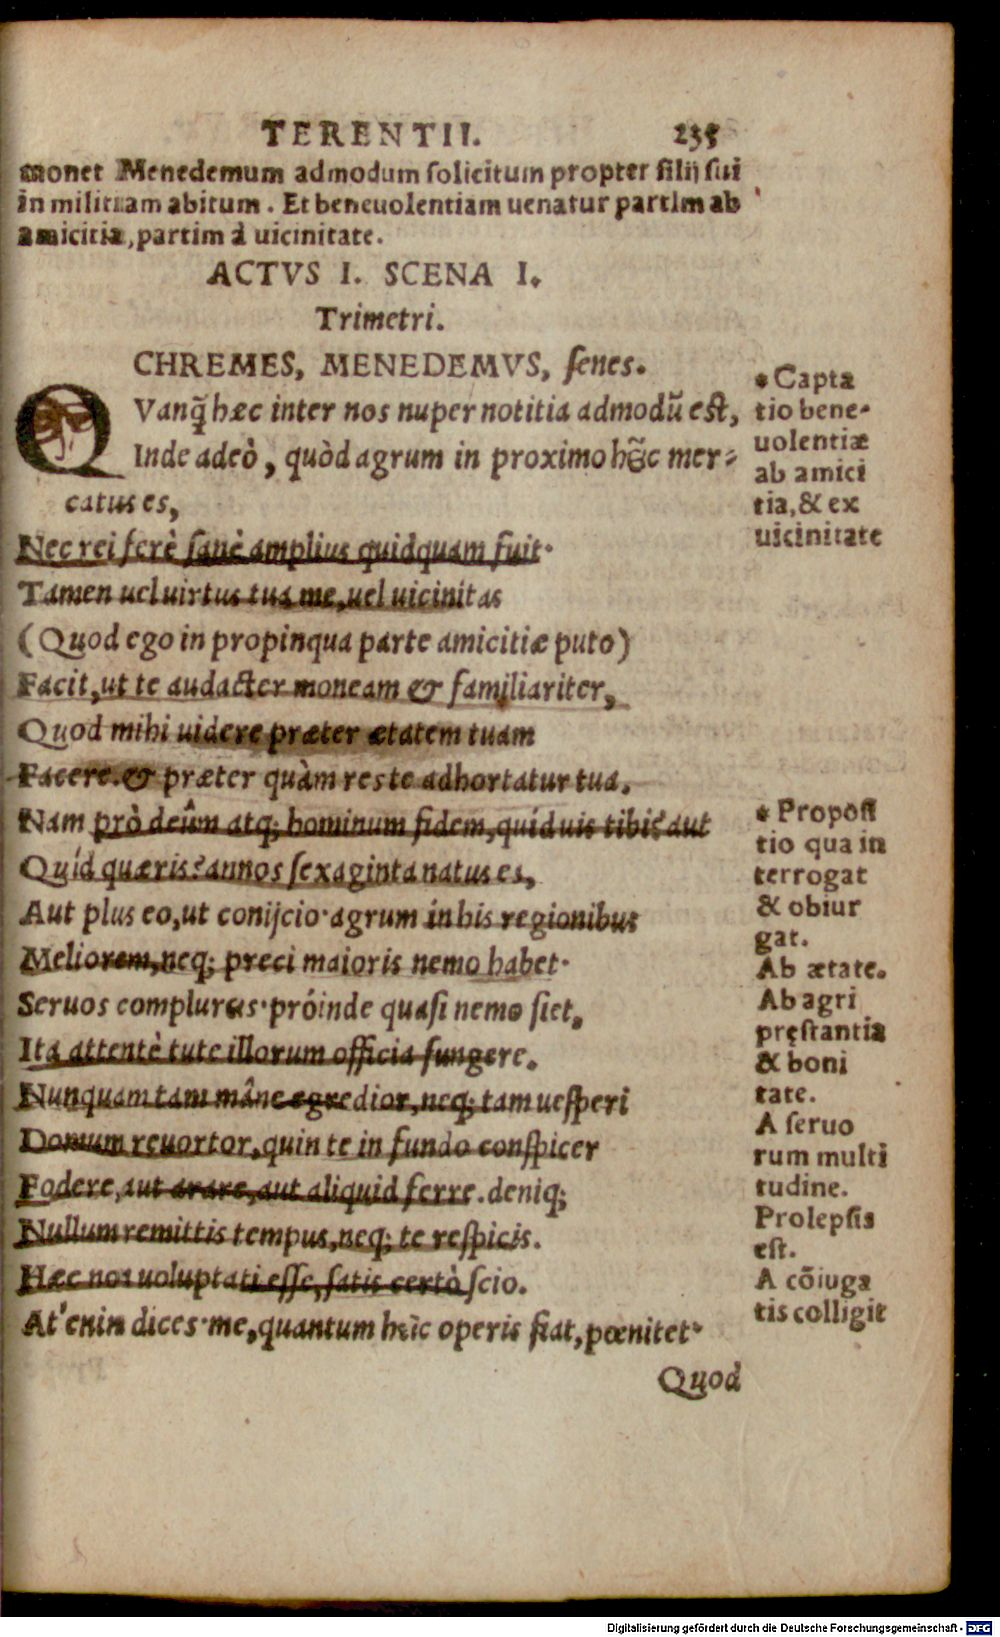 TERENTII. 235
monet Menedemum admodum solicitum propter filij sui
in militiam abitum. Et beneuolentiam uenatur partim ab
amicitia, partim à uicinitate.
ACTVS I. SCENA I.
Trimetri.
CHREMES, MENEDEMVS, senes.
QVanq̃ hæc inter nos nuper notitia admodũ est,
Inde adeò, quòd agrum in proximo hũc mer-
catus es,
Nec rei ferè sanè amplius quidquam fuit.
Tamen uel uirtus tua me, uel uicinitas
(Quod ego in propinqua parte amicitiæ puto)
Facit, ut te audacter moneam & familiariter,
Quod mihi uidere præter ætatem tuam
Facere. & præter quàm res te adhortatur tua.
Nam prò deûm atq; hominum fidem, quid uis tibi? aut
Quíd quæris? annos sexaginta natus es,
Aut plus eo, ut conijcio. agrum in his regionibus
Meliorem, neq; preci maioris nemo habet.
Seruos complureis. próinde quasi nemo siet,
Ita attentè tute illorum officia fungere.
Nunquam tam mâne egredior, neq; tam uesperi
Domum reuortor, quin te in fundo conspicer
Fodere, aut arare, aut aliquid ferre. deniq;
Nullum remittis tempus, neq; te respicis.
Hæc non uoluptati esse, satis certò scio.
At enin dices. me, quantum hîc operis fiat, pœnitet.
Quod
* Capta
tio bene-
uolentiæ
ab amici
tia, & ex
uicinitate
* Proposi
tio qua in
terrogat
& obiur
gat.
Ab ætate.
Ab agri
pręstantia
& boni
tate.
A seruo
rum multi
tudine.
Prolepsis
est.
A cõiuga
tis colligit
Digitalisierung gefördert durch die Deutsche Forschungsgemeinschaft - DFG